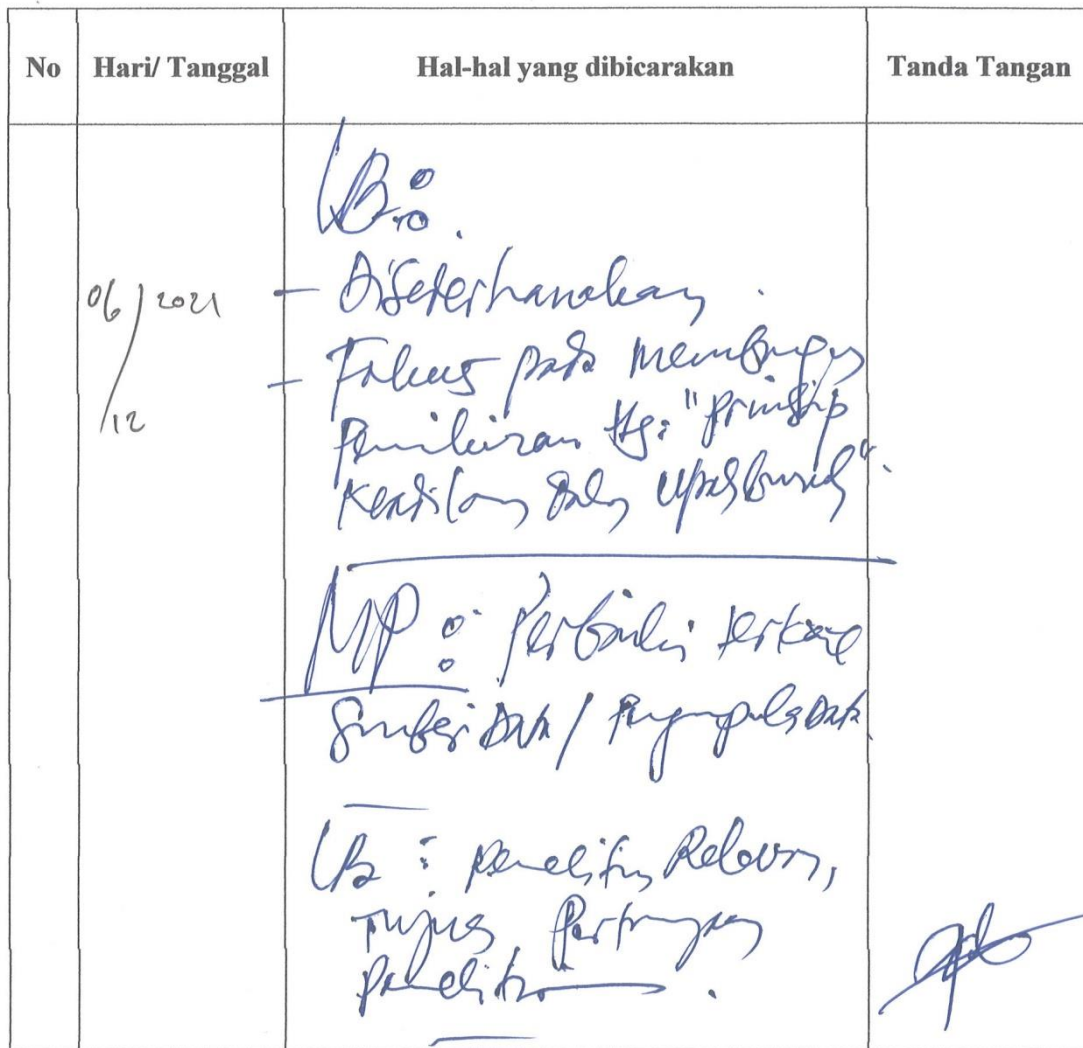 No Hari/ Tanggal Hal-hal yang dibicarakan Tanda Tangan
06/12 2021
- Disederhanakan.
- Fokus pada
pemikiran ttg: "prinsip
keadilan dalam
MP : Perbaiki terkait
Sumber Data / Pengumpulan Data
: Penelitian Relevan,
Tujuan, Pertanyaan
penelitian.